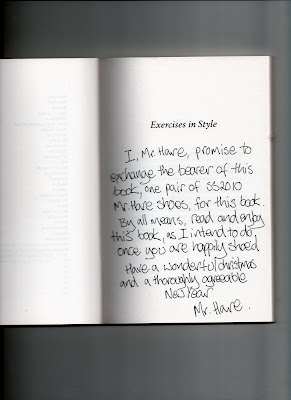 Exercises in Style
I, Mr. Hare, promise to
exchange the bearer of this
book, one pair of SS2010
Mr Hare shoes, for this book.
By all means, read and enjoy
this book, as I intend to do,
once you are happily shoed
Have a wonderful christmas
and a thoroughly agreeable
New Year
Mr. Hare.